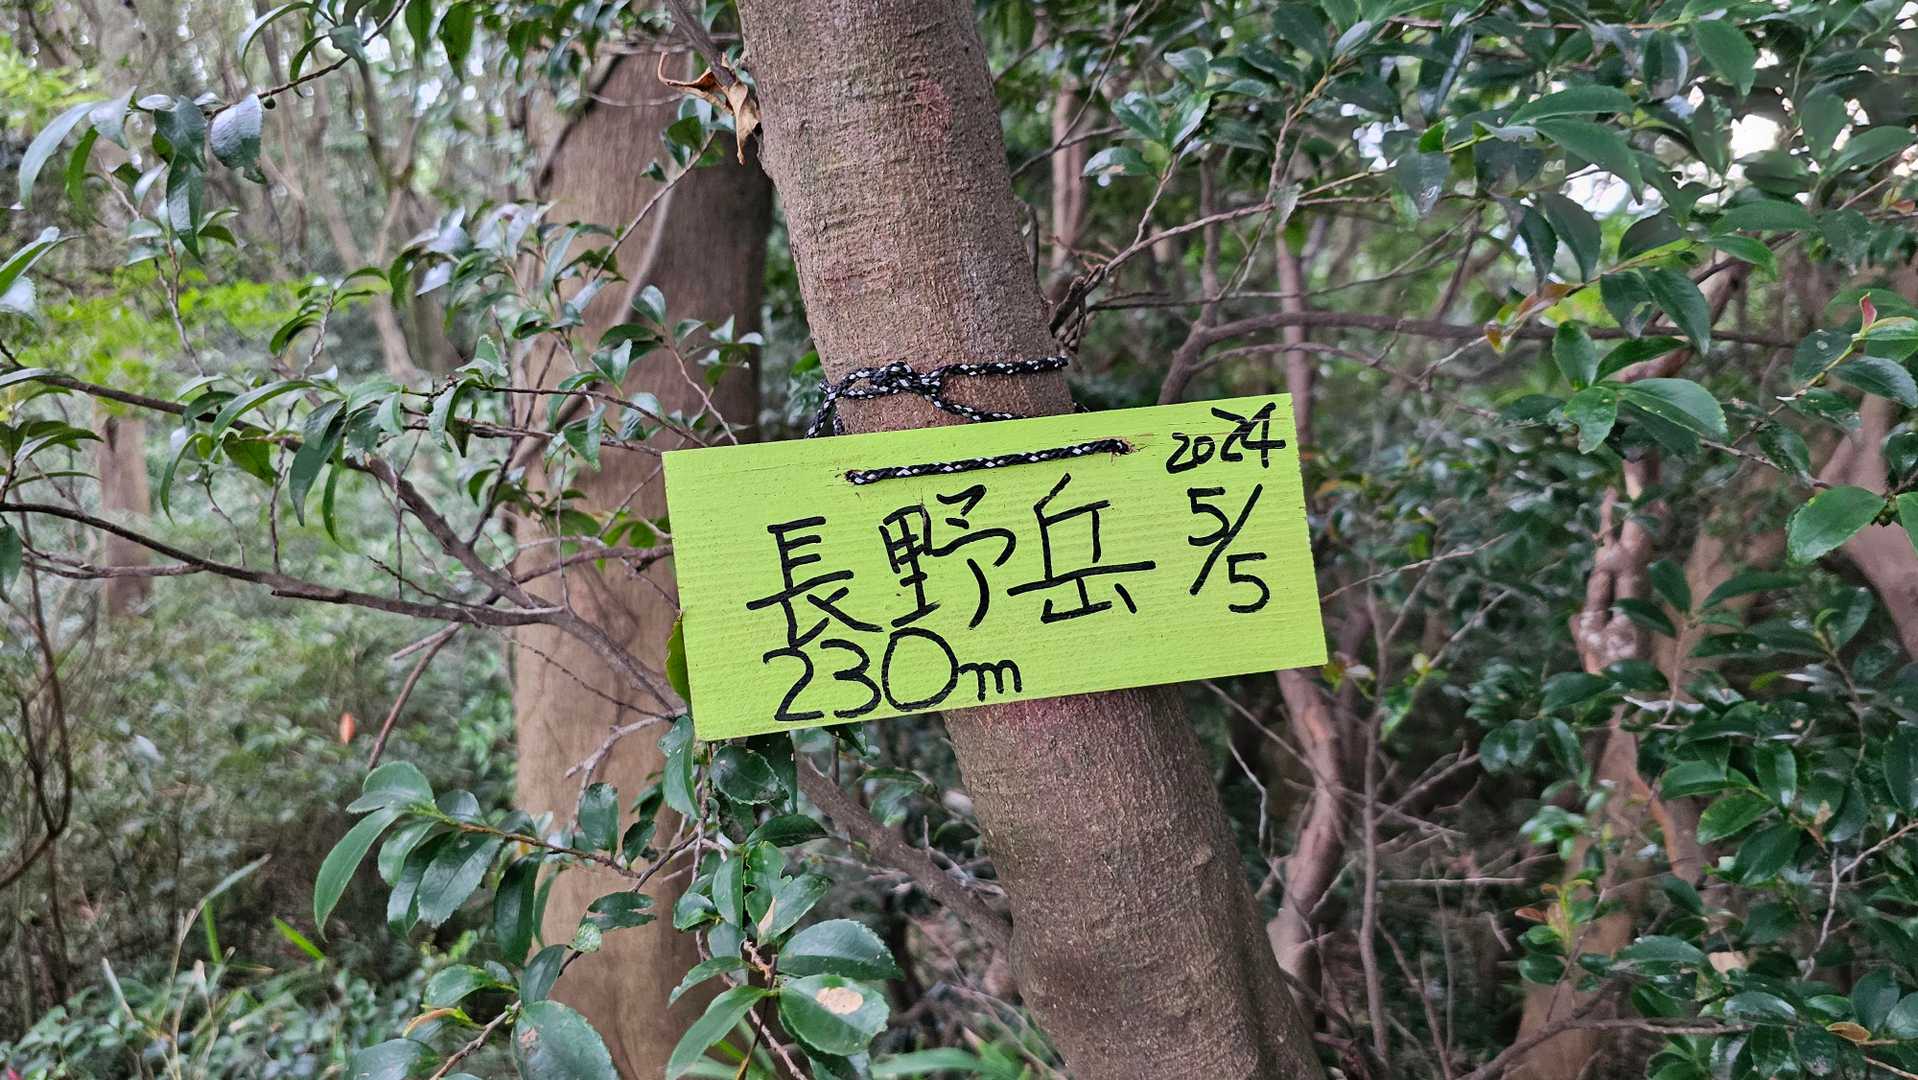 2024
長野岳 5/5
230m